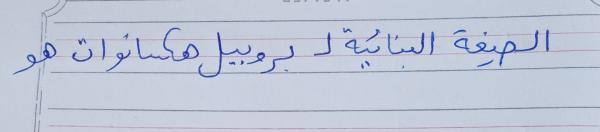 الصيغة البنائية لـ بروبيل هكسانوات هو